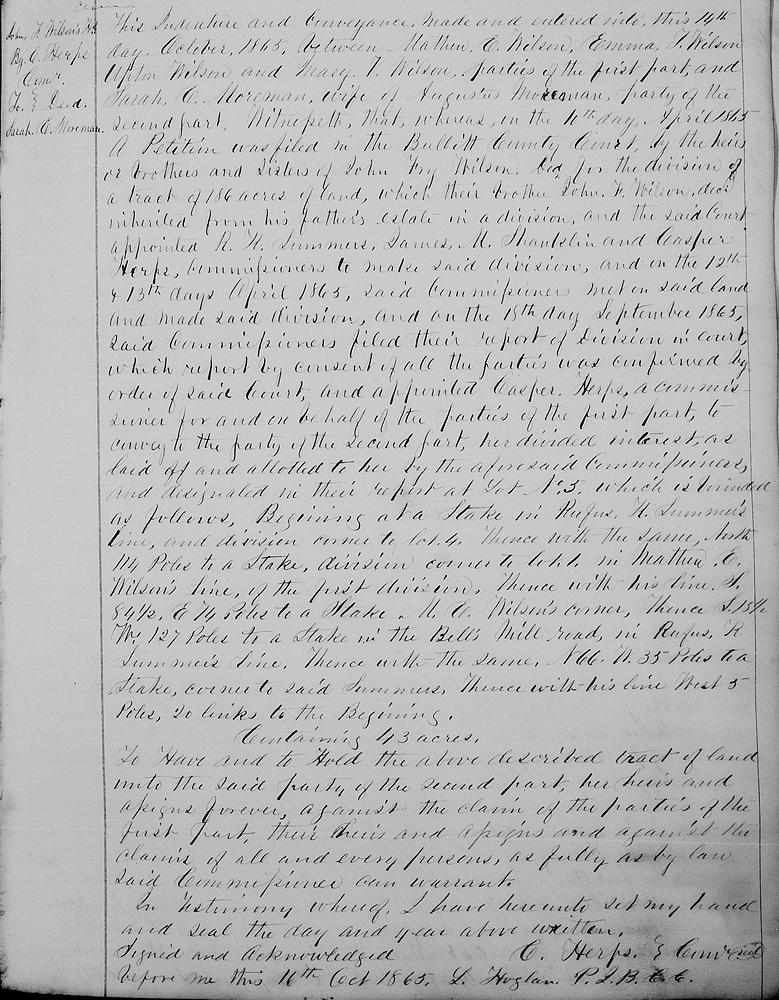 John F Wilson's Hs
By C. Herps
Comr.
To } Deed.
Sarah. C. Moreman.
This Indenture and Conveyance, made and entered into, this 14th
day. October, 1865, between Mathew. C. Wilson, Emma, F. Wilson
Upton Wilson and Mary. T. Wilson, parties of the first part, and
Sarah, C. Moreman, wife of Augustus Moreman, party of the
second part, Witnesseth, that, whereas, on the 10th day, April 1865
A Petition was filed in the Bullitt County Court, by the heirs
or brothers and Sisters of John Fry Wilson. Decd for the division of
a tract of 186 acres of land, which their brother John. F. Wilson, decd
inherited from his father's estate in a division, and the said Court
appointed R. H. Summers, James, M. Shanklin and Casper
Herps, Commissioners to make said division, and on the 12th
& 13th days April 1865, said Commissioners met on said land
and made said division, and on the 18th day September 1865,
said Commissioners filed their report of Division in court,
which report by consent of all the parties was confirmed by
order of said Court, and appointed Casper. Herps, a commis-
sioner for and on behalf of the parties of the first part, to
convey to the party of the second part, her divided interest, as
laid off and allotted to her by the aforesaid Commissioners,
and designated in their report at Lot No. 5. which is bounded
as follows, Begining at a Stake in Rufus, H. Summer's
line, and division corner to lot. 4. Thence with the same, North
114 Poles to a Stake, division corner to lot. 1. in Mathew, C.
Wilson's line, of the first division. Thence with his line. S.
84½. E 74 Poles to a Stake. M. C. Wilson's corner, Thence S. 18½
W. 127 Poles to a Stake in the Bell's Mill road, in Rufus, H
Summer's Line. Thence with the same, N 66. W. 35 Poles to a
Stake, corner to said Summers. Thence with his line West 5
Poles, 20 links to the Begining.
Containing 43 acres.
To Have and to Hold the above described tract of land
unto the said party of the second part, her heirs and
assigns forever, against the claim of the parties of the
first part, their heirs and assigns and against the
claims of all and every persons, as fully as by law
said Commissioner can warrant.
In Testimony whereof, I have hereunto set my hand
and seal the day and year above written.
Signed and Acknowledged C. Herps. } Comr seal
before me this 16th Oct 1865. L. Hoglan. P. J. B. C. C.